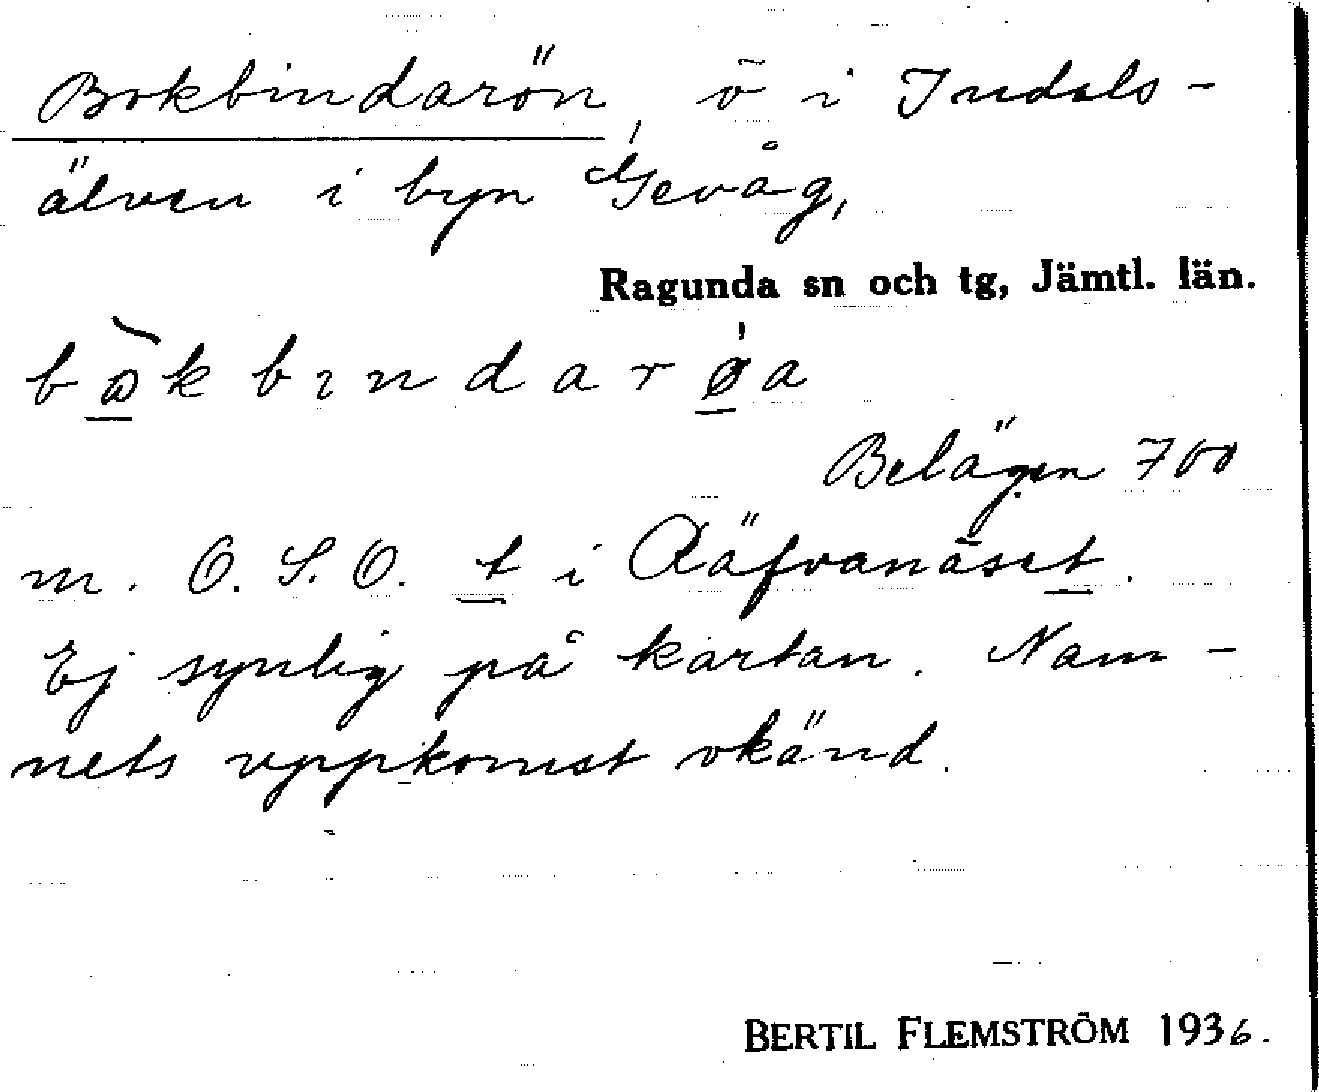 Bokbindarön, ö i Indals-
älven i byn Gevåg,
Ragunda sn och tg, Jämtl. län.
bò̱kbɪndarǿ̱a
Belägen 700
m. O.S.O. t̲ i Räfvanäset̲.
Ej synlig på kartan. Nam-
nets uppkomst okänd.
BERTIL FLEMSTRÖM 1936.